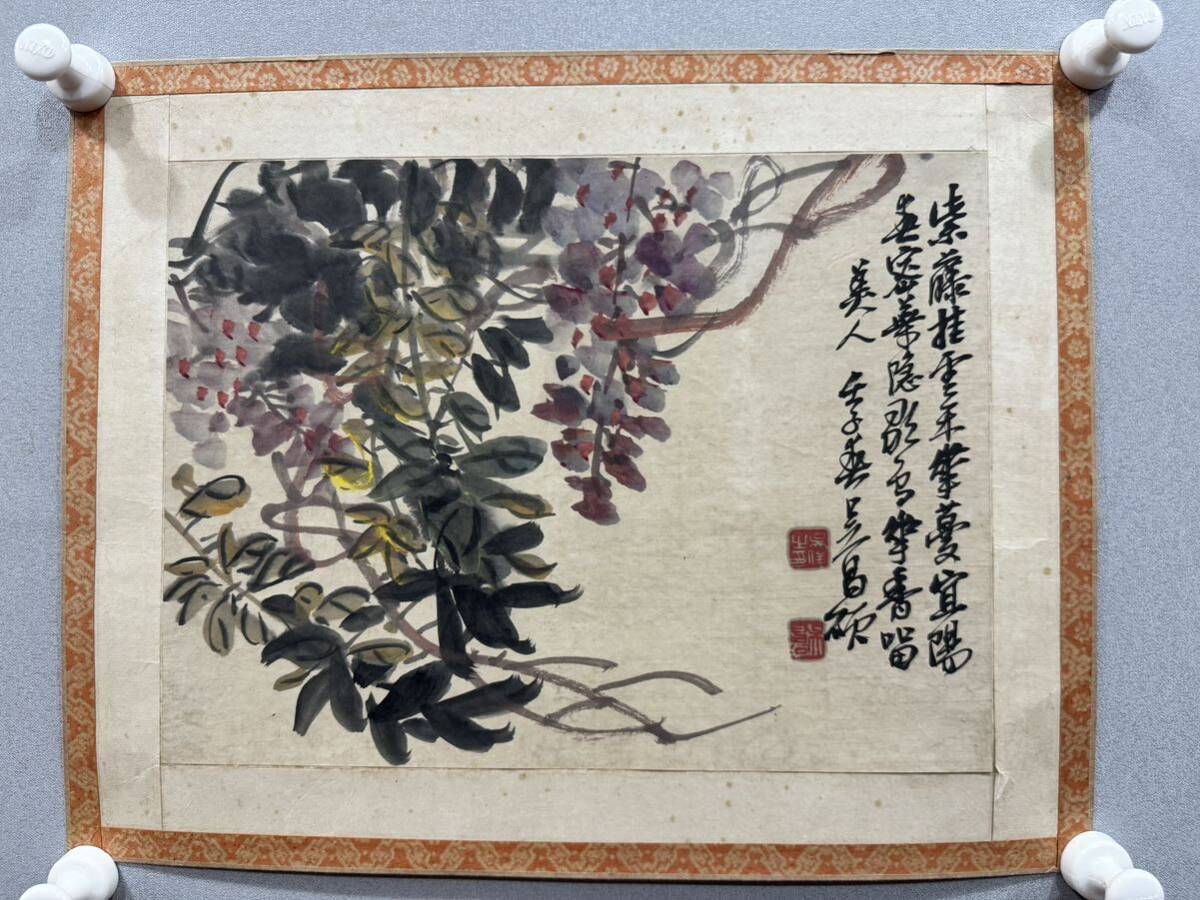 紫藤挂雲木華蔓宜陽
春密葉隱歌鳥華香留
美人 壬子春吳昌碩
吳俊之印